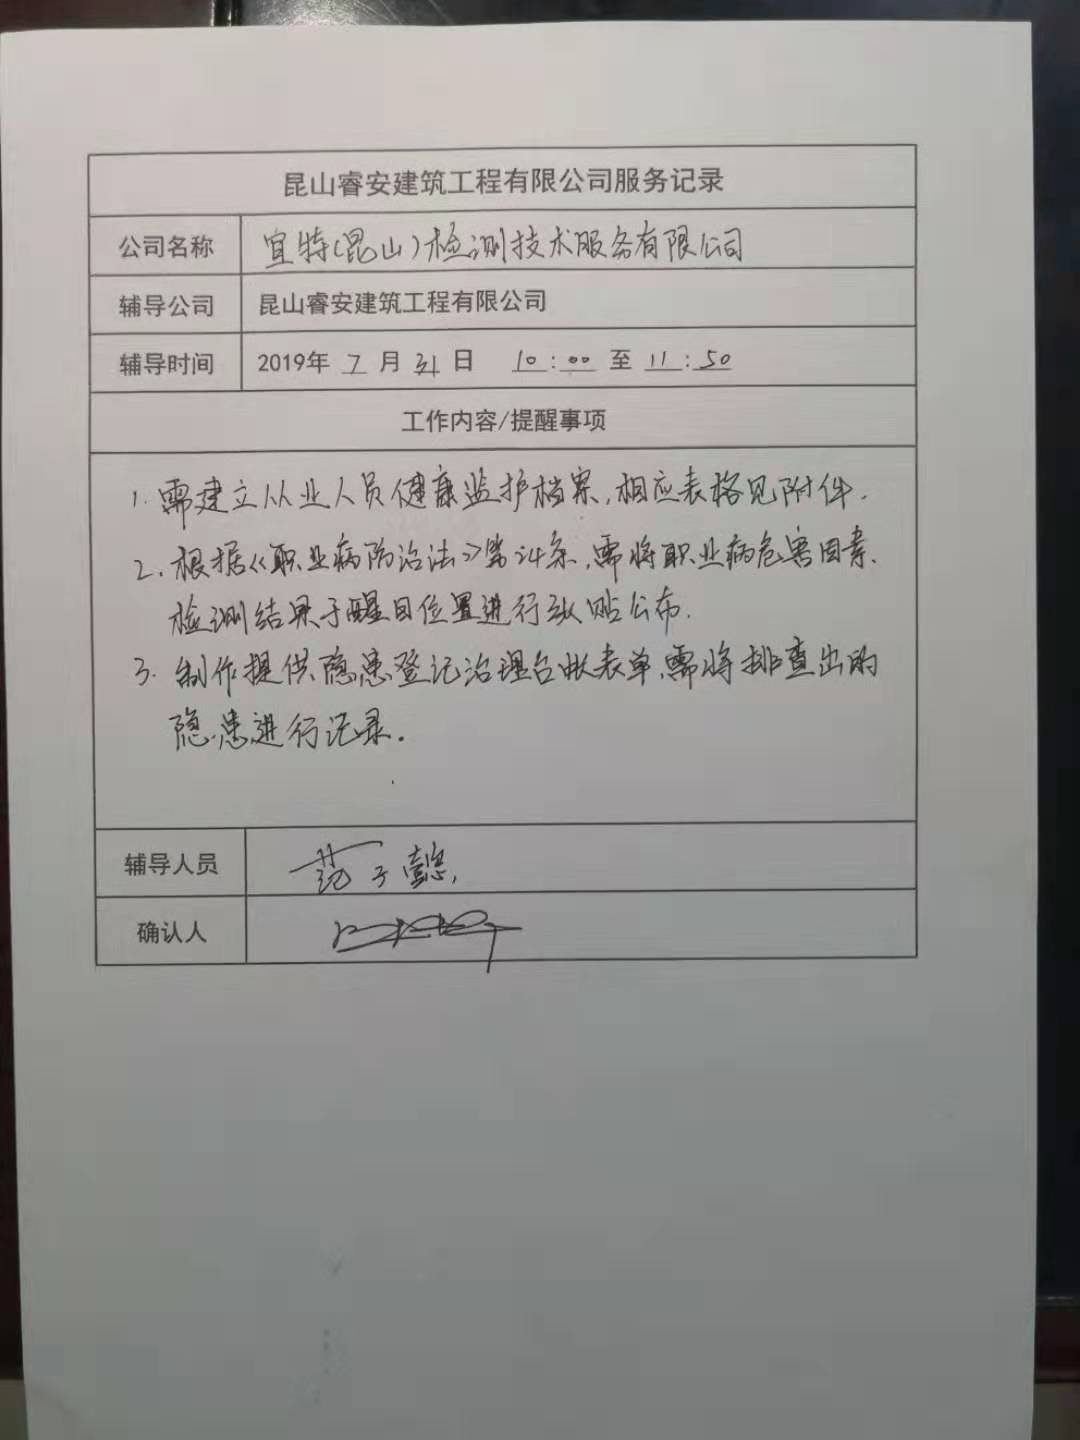 昆山睿安建筑工程有限公司服务记录
公司名称 宜特(昆山)检测技术服务有限公司
辅导公司 昆山睿安建筑工程有限公司
辅导时间 2019年 7 月 31 日 10:00 至 11:50
工作内容/提醒事项
1. 需建立从业人员健康监护档案,相应表格见附件.
2. 根据《职业病防治法》第24条,需将职业病危害因素.
检测结果于醒目位置进行张贴公布.
3. 制作提供隐患登记治理台帐表单,需将排查出的
隐患进行记录.
辅导人员 范子懿
确认人